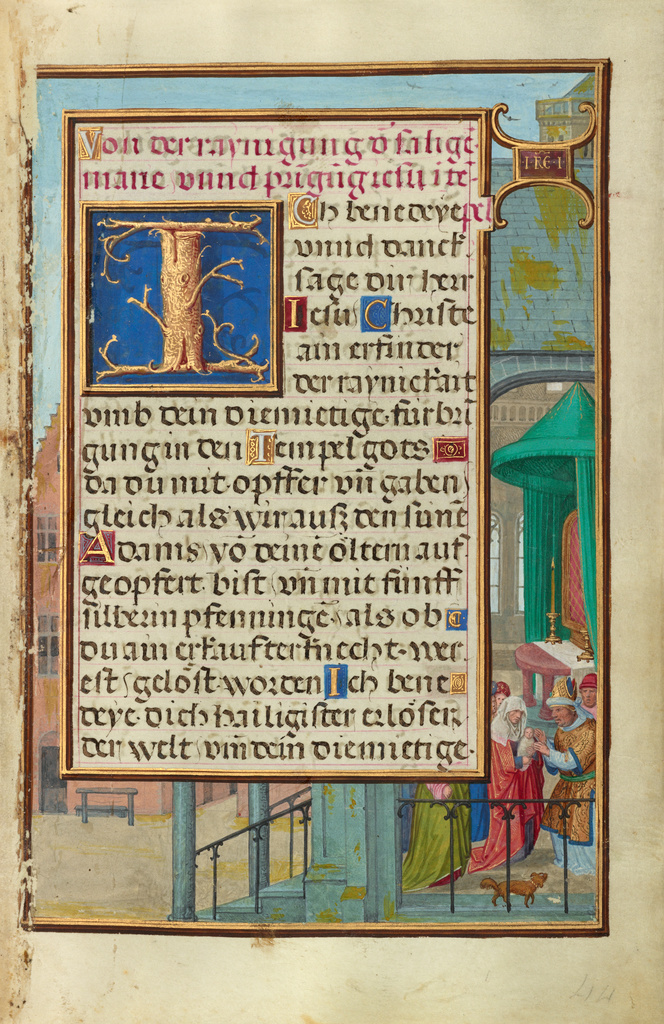 Von der raynigung d̄ salige
marie vnnd pringūg iesu ī tē
pel
Ch benedeye
vnnd danck
sage dir herr
Iesu Christe
ain erfinder
der raynickait
vmb dein diemietige fürbrī
gung in den Tempel gots
da du mit opffer vn̄ gaben
gleich als wir ausz den sūnē
Adams vō deinē öltern auf
geopfert bist vn̄ mit fünff
silberin pfenningē als ob
du ain erkaufter knecht wer
est gelöst worden Ich bene
deye dich hailigister erlöser
der welt vm̄ dein diemietige
44